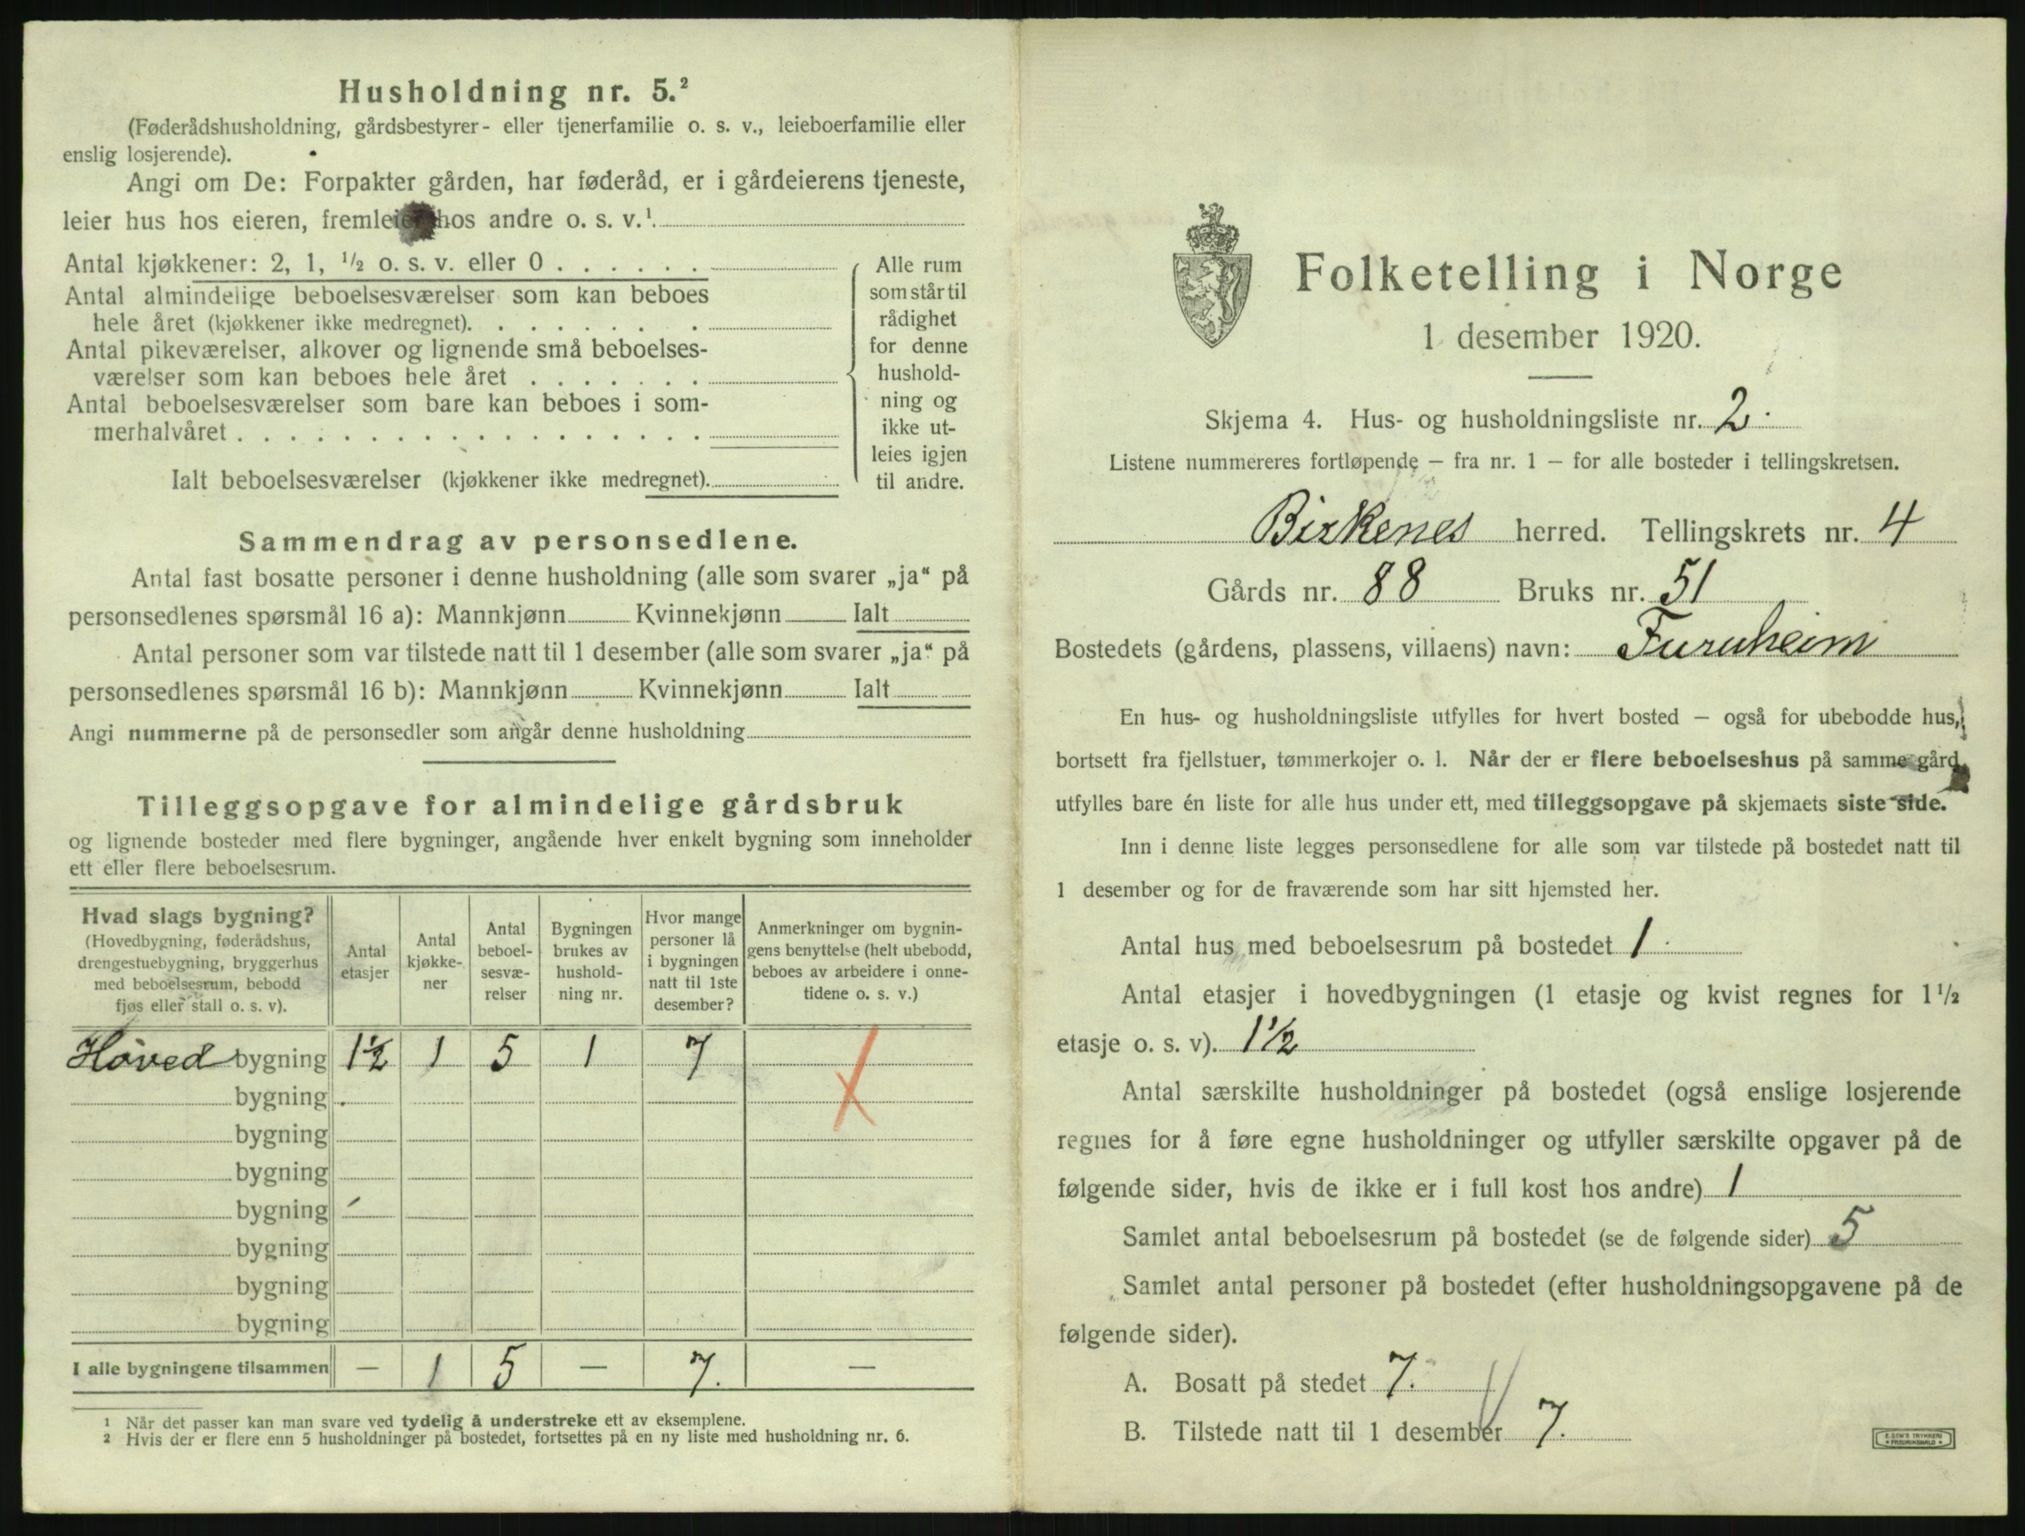 Husholdning nr. 5.²
(Føderådshusholdning, gårdsbestyrer- eller tjenerfamilie o. s. v., leieboerfamilie eller
enslig losjerende).
Angi om De: Forpakter gården, har føderåd, er i gårdeierens tjeneste,
leier hus hos eieren, fremleier hos andre o. s. v.¹
Antal kjøkkener: 2, 1, ½ o. s. v. eller 0 . . . . . .
Antal almindelige beboelsesværelser som kan beboes
hele året (kjøkkener ikke medregnet). . . . . . . . .
Antal pikeværelser, alkover og lignende små beboelses-
værelser som kan beboes hele året . . . . . . .
Antal beboelsesværelser som bare kan beboes i som-
merhalvåret . . . . . . . . . . . . . . . . . .
Ialt beboelsesværelser (kjøkkener ikke medregnet).
Alle rum
som står til
rådighet
for denne
hushold-
ning og
ikke ut-
leies igjen
til andre.
Sammendrag av personsedlene.
Antal fast bosatte personer i denne husholdning (alle som svarer „ja“ på
personsedlenes spørsmål 16 a): Mannkjønn Kvinnekjønn Ialt
Antal personer som var tilstede natt til 1 desember (alle som svarer „ja“ på
personsedlenes spørsmål 16 b): Mannkjønn Kvinnekjønn Ialt
Angi nummerne på de personsedler som angår denne husholdning
Tilleggsopgave for almindelige gårdsbruk
og lignende bosteder med flere bygninger, angående hver enkelt bygning som inneholder
ett eller flere beboelsesrum.
Hvad slags bygning?
(Hovedbygning, føderådshus,
drengestuebygning, bryggerhus
med beboelsesrum, bebodd
fjøs eller stall o. s. v).
Antal
etasjer
Antal
kjøkke-
ner
Antal
beboel-
sesvæ-
relser
Bygningen
brukes av
hushold-
ning nr.
Hvor mange
personer lå
i bygningen
natt til 1ste
desember?
Anmerkninger om bygnin-
gens benyttelse (helt ubebodd,
beboes av arbeidere i onne-
tidene o. s. v.)
Hoved bygning 1½ 1 5 1 7
bygning
bygning
bygning
bygning
bygning
bygning
bygning
I alle bygningene tilsammen — 1 5 — 7. —
¹ Når det passer kan man svare ved tydelig å understreke ett av eksemplene.
² Hvis der er flere enn 5 husholdninger på bostedet, fortsettes på en ny liste med husholdning nr. 6.
Folketelling i Norge
1 desember 1920.
Skjema 4. Hus- og husholdningsliste nr. 2.
Listene nummereres fortløpende — fra nr. 1 — for alle bosteder i tellingskretsen.
Birkenes herred. Tellingskrets nr. 4
Gårds nr. 88 Bruks nr. 51
Bostedets (gårdens, plassens, villaens) navn: Furuheim
En hus- og husholdningsliste utfylles for hvert bosted — også for ubebodde hus,
bortsett fra fjellstuer, tømmerkojer o. l. Når der er flere beboelseshus på samme gård,
utfylles bare én liste for alle hus under ett, med tilleggsopgave på skjemaets siste side.
Inn i denne liste legges personsedlene for alle som var tilstede på bostedet natt til
1 desember og for de fraværende som har sitt hjemsted her.
Antal hus med beboelsesrum på bostedet 1.
Antal etasjer i hovedbygningen (1 etasje og kvist regnes for 1½
etasje o. s. v). 1½
Antal særskilte husholdninger på bostedet (også enslige losjerende
regnes for å føre egne husholdninger og utfyller særskilte opgaver på de
følgende sider, hvis de ikke er i full kost hos andre) 1
Samlet antal beboelsesrum på bostedet (se de følgende sider) 5
Samlet antal personer på bostedet (efter husholdningsopgavene på de
følgende sider).
A. Bosatt på stedet 7.
B. Tilstede natt til 1 desember 7.